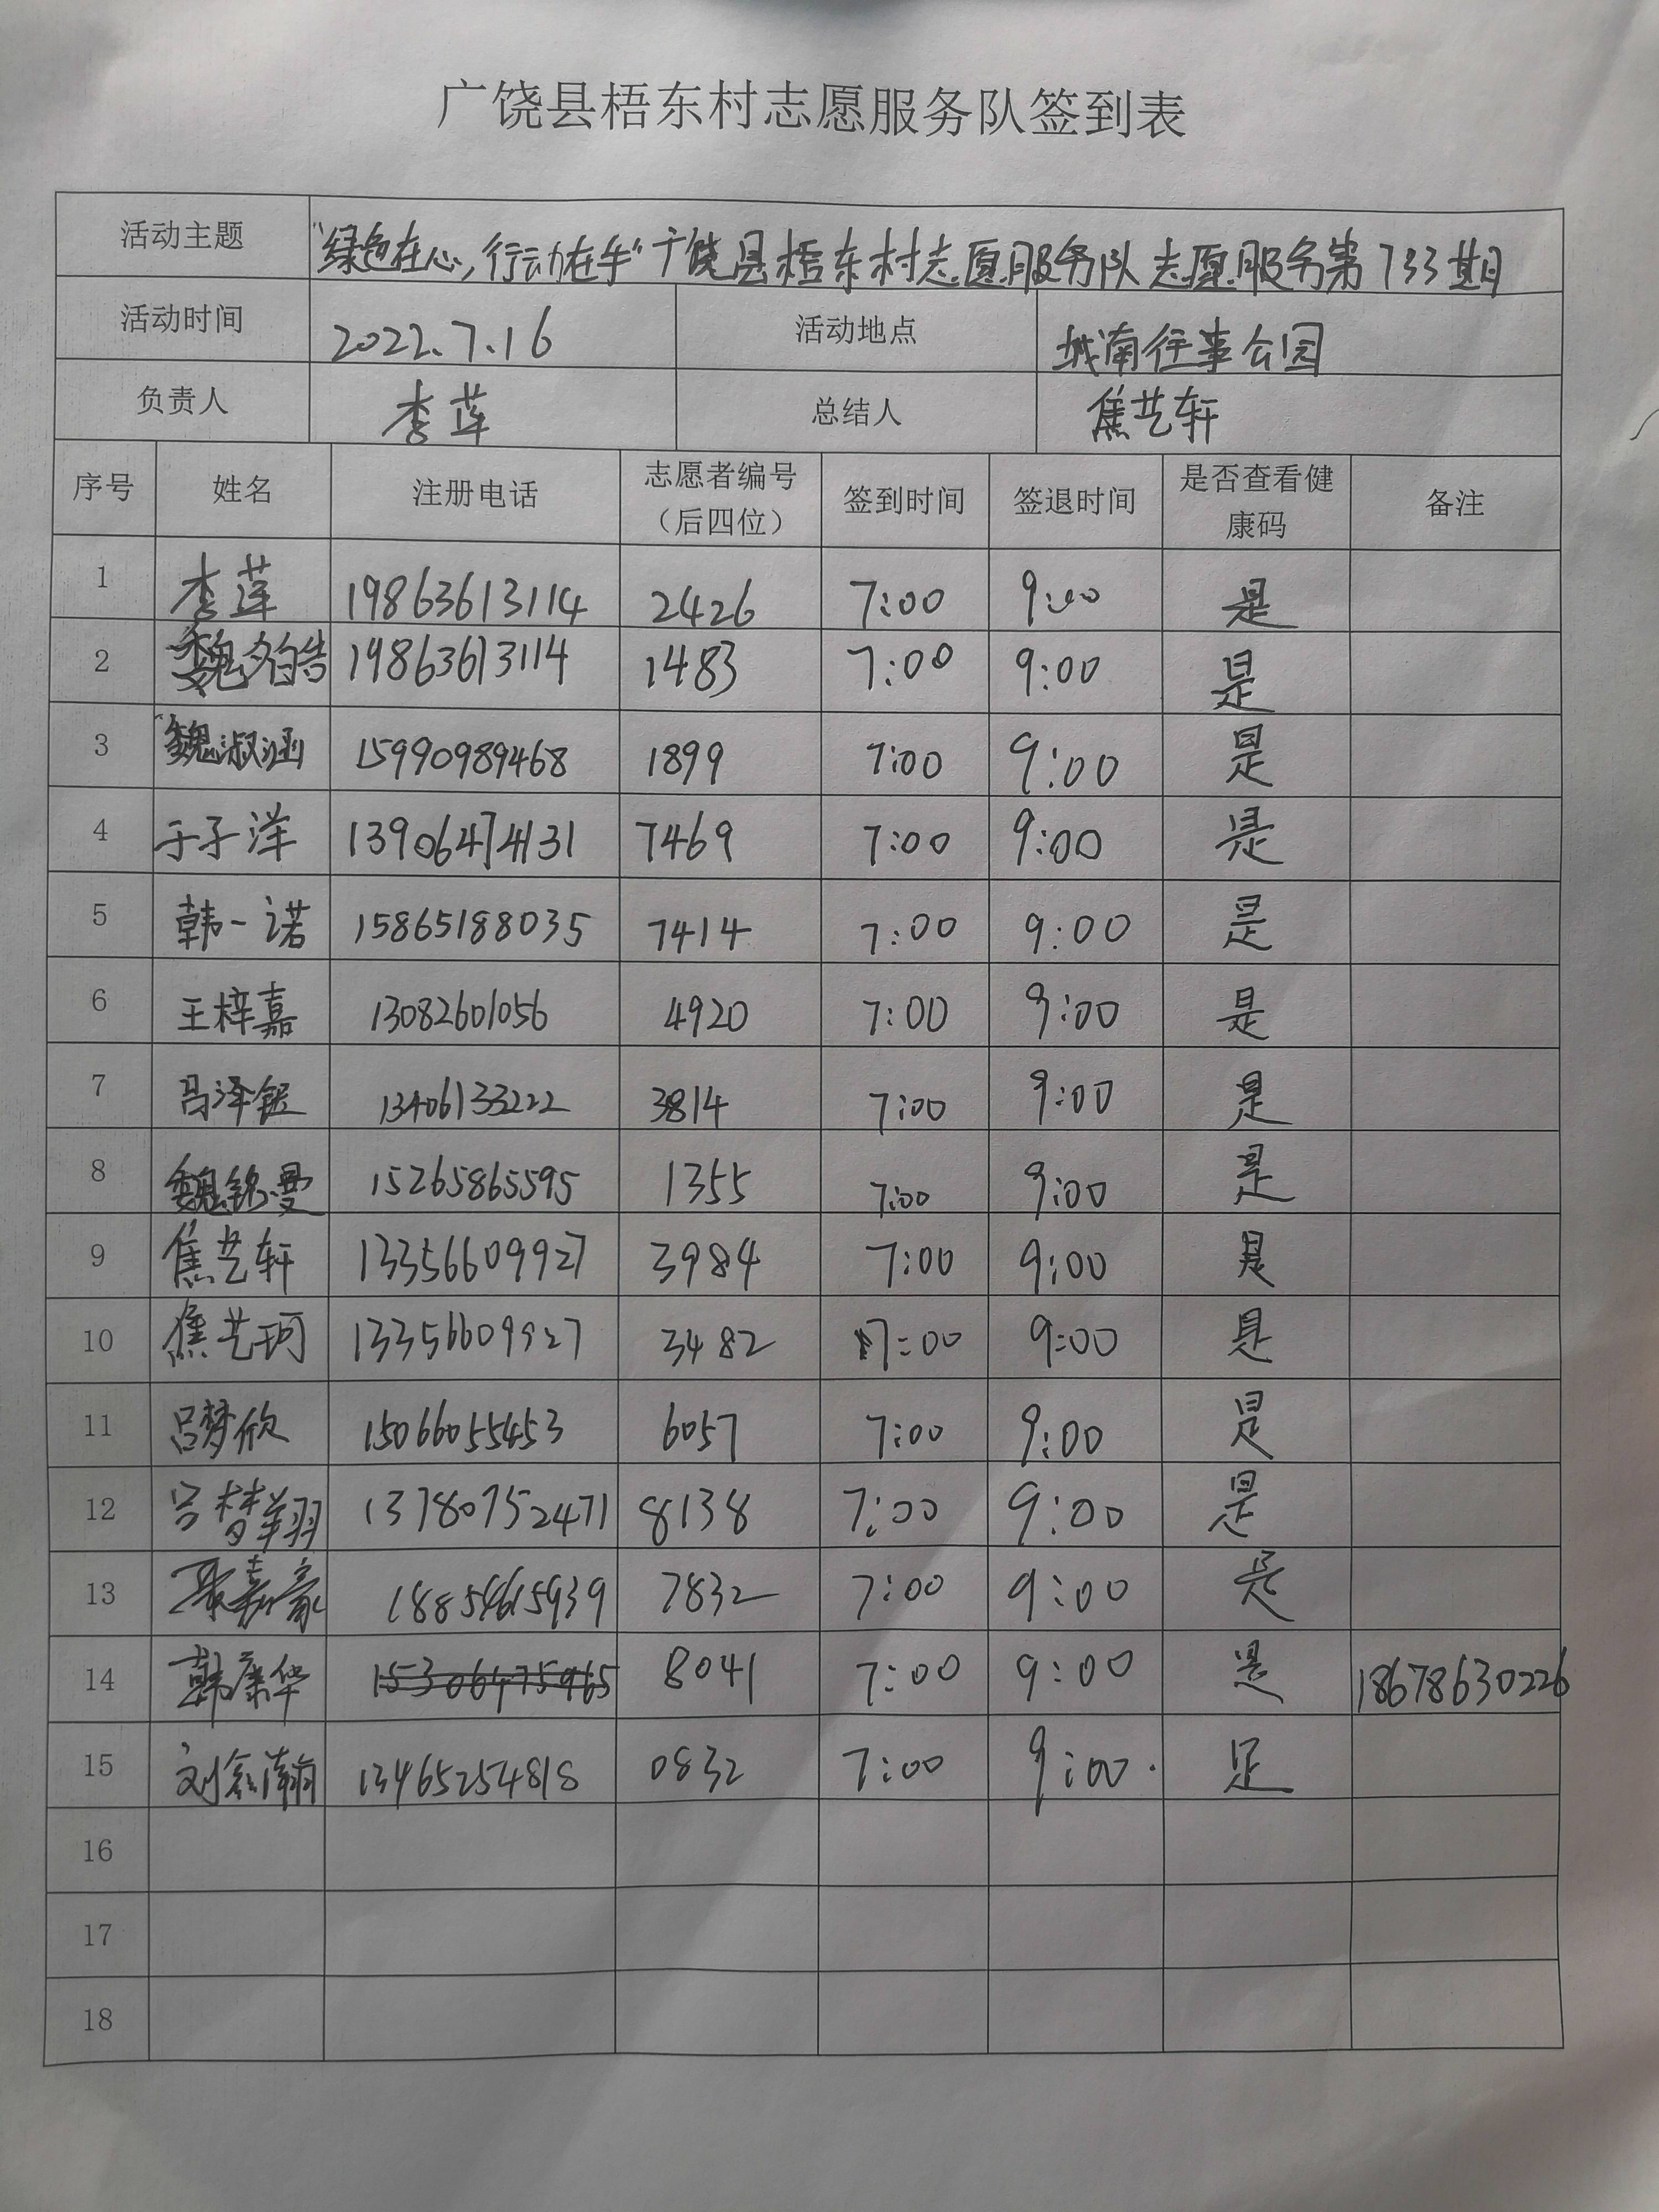 广饶县梧东村志愿服务队签到表
活动主题 "绿色在心,行动在手"广饶县梧东村志愿服务队志愿服务第733期
活动时间 2022.7.16 活动地点 城南往事公园
负责人 李莲 总结人 焦艺轩
序号 姓名 注册电话 志愿者编号（后四位） 签到时间 签退时间 是否查看健康码 备注
1 李莲 19863613114 2426 7:00 9:00 是
2 魏 19863613114 1483 7:00 9:00 是
3 魏淑涵 15990989468 1899 7:00 9:00 是
4 于子洋 13906474131 7469 7:00 9:00 是
5 韩一诺 15865188035 7414 7:00 9:00 是
6 王梓嘉 13082601056 4920 7:00 9:00 是
7 吕泽 13406133222 3814 7:00 9:00 是
8 魏铭曼 15265865595 1355 7:00 9:00 是
9 焦艺轩 13356609927 3984 7:00 9:00 是
10 焦艺珂 13356609927 3482 7:00 9:00 是
11 吕梦欣 15066055453 6057 7:00 9:00 是
12 吕梦翔 13780752471 8138 7:00 9:00 是
13 聂嘉豪 18854615939 7832 7:00 9:00 是
14 韩康华 15306475965 8041 7:00 9:00 是 18678630226
15 刘鑫瀚 13465254818 0832 7:00 9:00 是
16
17
18